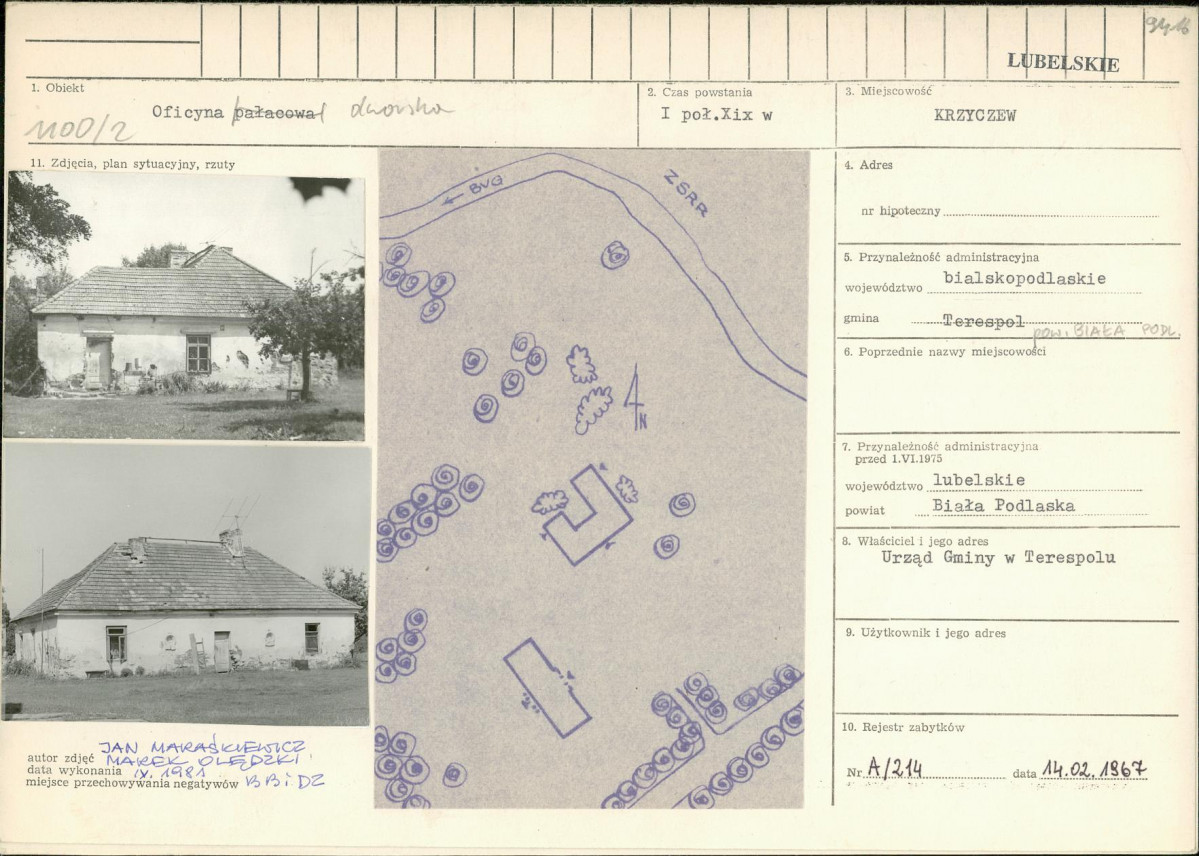 9416
LUBELSKIE
1. Obiekt
Oficyna pałacowa dworska
1100/2
2. Czas powstania
I poł.Xix w
3. Miejscowość
KRZYCZEW
11. Zdjęcia, plan sytuacyjny, rzuty
← BUG
ZSRR
N
"2"
autor zdjęć JAN MARAŚKIEWICZ
MAREK OLĘDZKI
data wykonania IX. 1981
miejsce przechowywania negatywów BBiDZ
4. Adres
nr hipoteczny
5. Przynależność administracyjna
województwo bialskopodlaskie
gmina Terespol pow. BIAŁA PODL.
6. Poprzednie nazwy miejscowości
7. Przynależność administracyjna
przed 1.VI.1975
województwo lubelskie
powiat Biała Podlaska
8. Właściciel i jego adres
Urząd Gminy w Terespolu
9. Użytkownik i jego adres
10. Rejestr zabytków
Nr A/214 data 14.02.1967